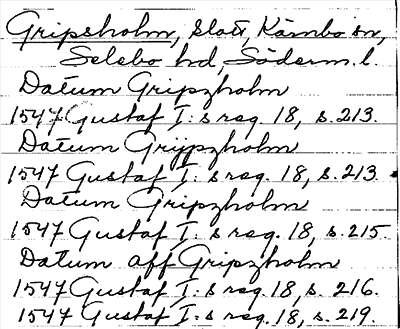 Gripsholm, slott, Kärnbo sn,
Selebo hd, Söderm. l.
Datum Gripzholm
1547 Gustaf I:s reg. 18, s. 213.
Datum Grijpzholm
1547 Gustaf I:s reg. 18, s. 213.
Datum Gripzholm
1547 Gustaf I:s reg. 18, s. 215.
Datum aff Gripzholm
1547 Gustaf I:s reg. 18, s. 216.
1547 Gustaf I:s reg. 18, s. 219.